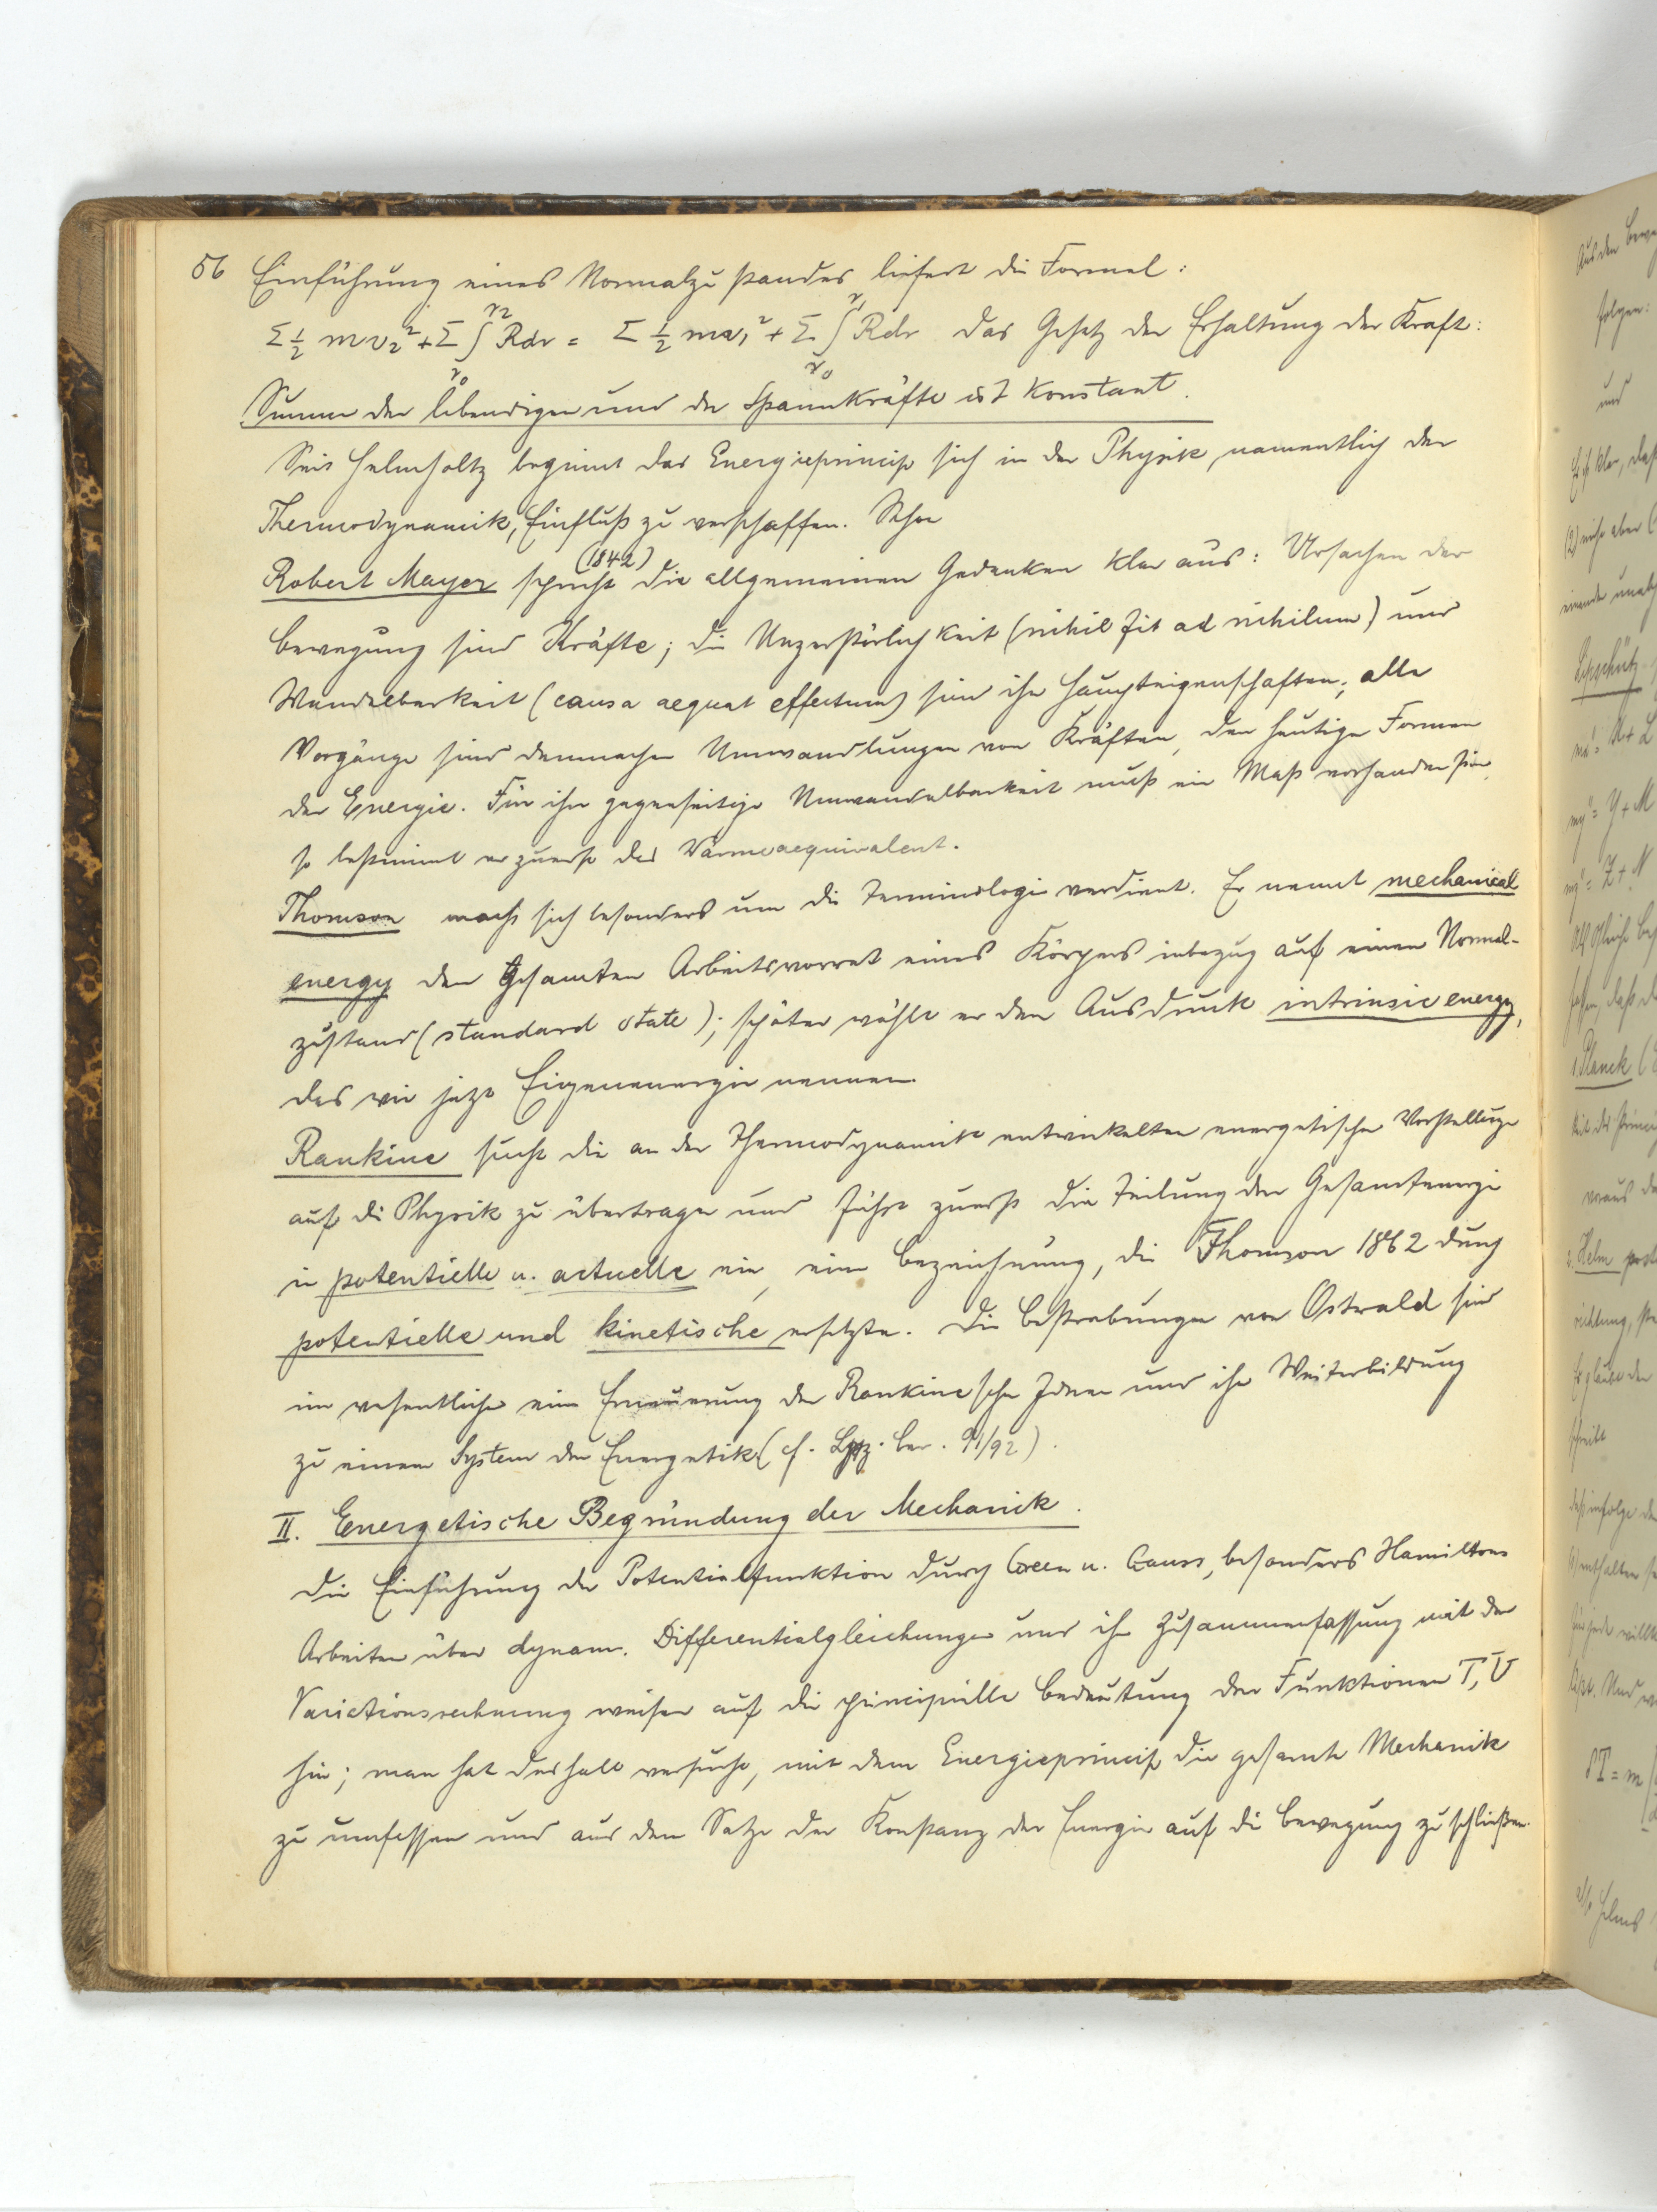 56 Einführung eines Normalzustandes liefert die Formel:
Σ ½ m v₂² + Σ ∫_{r₀}^{r₂} R dr = Σ ½ m v₁² + Σ ∫_{r₀}^{r₁} R dr das Gesetz der Erhaltung der Kraft:
Summe der lebendigen und der Spannkräfte ist konstant.
Seit Helmholtz beginnt das Energieprincip sich in der Physik, namentlich der
Thermodynamik, Einfluß zu verschaffen. Schon
Robert Mayer spricht (1842) die allgemeinen Gedanken klar aus: Ursachen der
Bewegung sind Kräfte; die Unzerstörlichkeit (nihil fit ad nihilum) und
Wandelbarkeit (causa aequat effectum) sind ihre Haupteigenschaften; alle
Vorgänge sind demnach Umwandlungen von Kräften, den heutigen Formen
der Energie. Für ihre gegenseitige Umwandelbarkeit muß ein Maß vorhanden sein,
so bestimmt er zuerst das Wärmeaequivalent.
Thomson macht sich besonders um die Terminologie verdient. Er nennt mechanical
energy den gesamten Arbeitsvorrat eines Körpers inbezug auf einen Normal-
zustand (standard state); später wählt er den Ausdruck intrinsic energy,
das wir jetzt Eigenenergie nennen.
Rankine sucht die an der Thermodynamik entwickelten energetischen Vorstellungen
auf die Physik zu übertragen und führt zuerst die Teilung der Gesamtenergie
in potentielle u. actuelle ein, eine Bezeichnung, die Thomson 1862 durch
potentielle und kinetische ersetzte. Die Bestrebungen von Ostwald sind
im wesentlichen eine Erneuerung der Rankineschen Ideen und ihre Weiterbildung
zu einem System der Energetik (cf. Lpz. Ber. 91/92).
II. Energetische Begründung der Mechanik.
Die Einführung der Potentialfunktion durch Green u. Gauss, besonders Hamiltons
Arbeiten über dynam. Differentialgleichungen und ihre Zusammenfassung mit der
Variationsrechnung weisen auf die principielle Bedeutung der Funktionen T, U
hin; man hat deshalb versucht, mit dem Energieprincip die gesamte Mechanik
zu umfassen und aus dem Satze der Konstanz der Energie auf die Bewegung zu schließen.